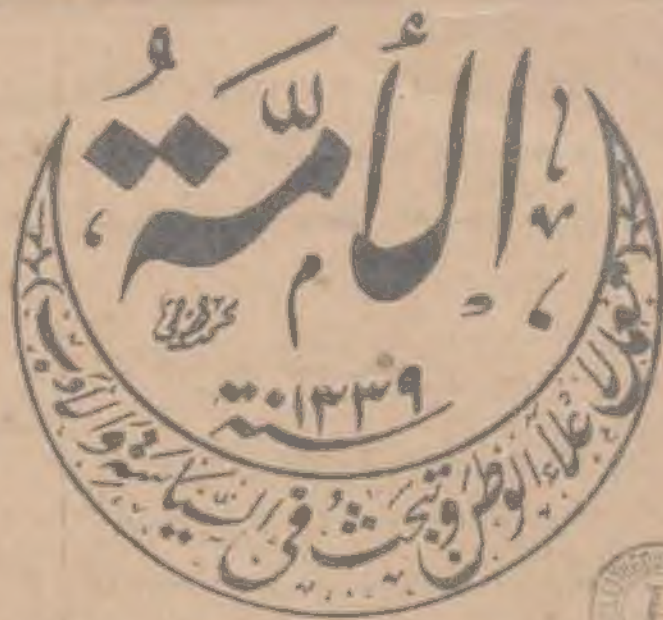 الأمّةُ
سنة ١٣٣٩
تعمل لاعلاء الوطن وتبحثُ في السّياسة والأدب